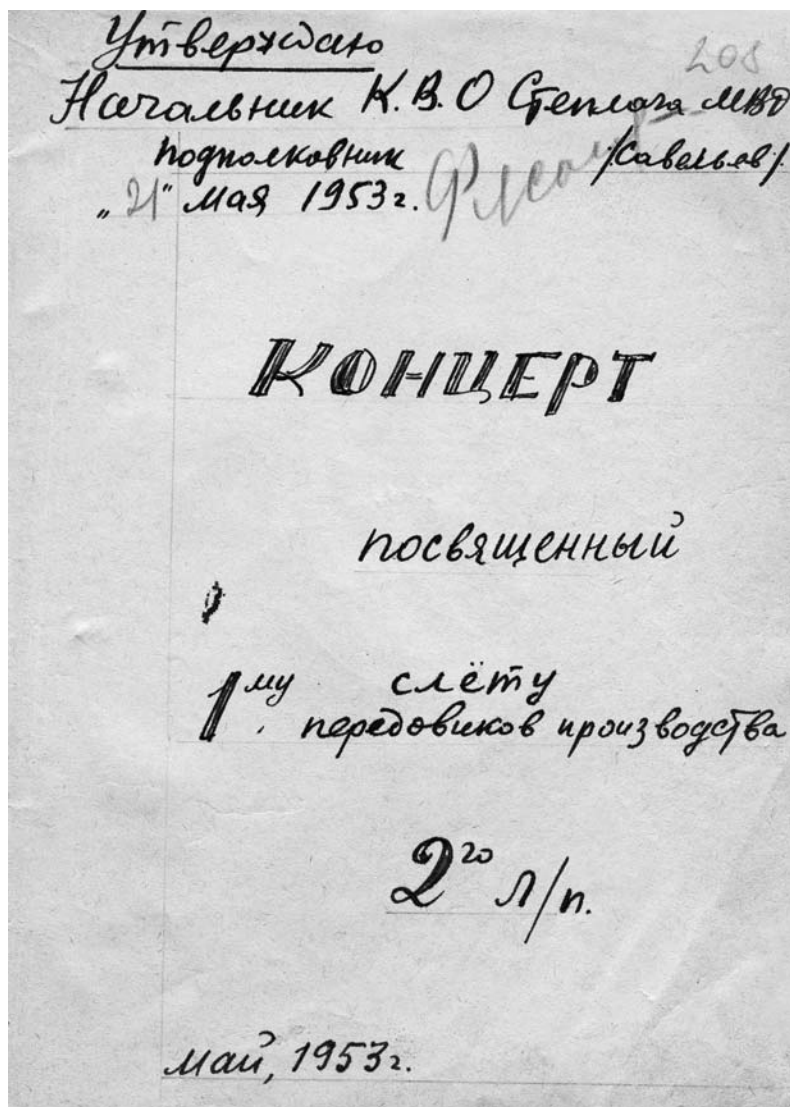 208
Утверждаю
Начальник К.В.О Степлага МВД
подполковник /Савельев/.
„21" мая 1953г.
КОНЦЕРТ
посвященный
1му слёту
передовиков производства
2го Л/п.
май, 1953г.